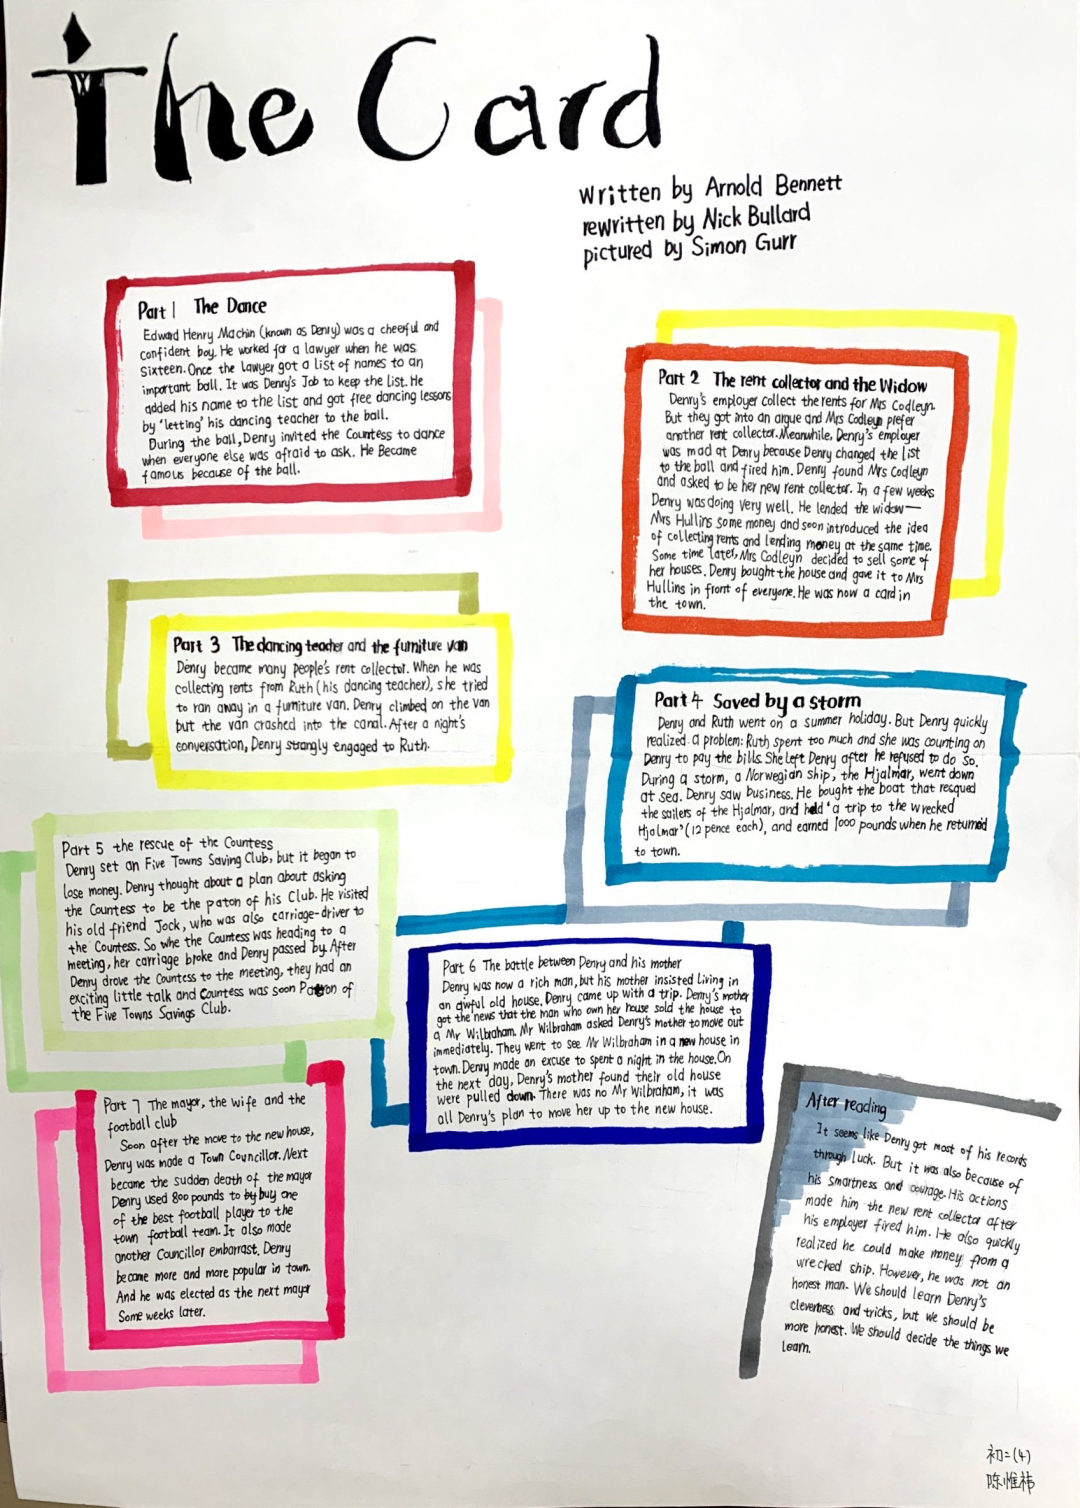 The Card
written by Arnold Bennett
rewritten by Nick Bullard
pictured by Simon Gurr
Part 1 The Dance
Edward Henry Machin (known as Denry) was a cheerful and
confident boy. He worked for a lawyer when he was
sixteen. Once the lawyer got a list of names to an
important ball. It was Denry's Job to keep the list. He
added his name to the list and got free dancing lessons
by 'letting' his dancing teacher to the ball.
During the ball, Denry invited the Countess to dance
when everyone else was afraid to ask. He Became
famous because of the ball.
Part 2 The rent collector and the Widow
Denry's employer collect the rents for Mrs Codleyn.
But they got into an argue and Mrs Codleyn prefer
another rent collector. Meanwhile, Denry's employer
was mad at Denry because Denry changed the list
to the ball and fired him. Denry found Mrs Codleyn
and asked to be her new rent collector. In a few weeks
Denry was doing very well. He lended the widow—
Mrs Hullins some money and soon introduced the idea
of collecting rents and lending money at the same time.
Some time later, Mrs Codleyn decided to sell some of
her houses. Denry bought the house and gave it to Mrs
Hullins in front of everyone. He was now a card in
the town.
Part 3 The dancing teacher and the furniture van
Denry became many people's rent collector. When he was
collecting rents from Ruth (his dancing teacher), she tried
to ran away in a furniture van. Denry climbed on the van
but the van crashed into the canal. After a night's
conversation, Denry strangly engaged to Ruth.
Part 4 Saved by a storm
Denry and Ruth went on a summer holiday. But Denry quickly
realized a problem: Ruth spent too much and she was counting on
Denry to pay the bills. She left Denry after he refused to do so.
During a storm, a Norwegian ship, the Hjalmar, went down
at sea. Denry saw business. He bought the boat that resqued
the sailers of the Hjalmar, and held 'a trip to the wrecked
Hjalmar' (12 pence each), and earned 1000 pounds when he returned
to town.
Part 5 the rescue of the Countess
Denry set an Five Towns Saving Club, but it began to
lose money. Denry thought about a plan about asking
the Countess to be the paton of his Club. He visited
his old friend Jock, who was also carriage-driver to
the Countess. So whe the Countess was heading to a
meeting, her carriage broke and Denry passed by. After
Denry drove the Countess to the meeting, they had an
exciting little talk and Countess was soon Patron of
the Five Towns Savings Club.
Part 6 The battle between Denry and his mother
Denry was now a rich man, but his mother insisted living in
an awful old house. Denry came up with a trip. Denry's mother
got the news that the man who own her house sold the house to
a Mr Wilbraham. Mr Wilbraham asked Denry's mother to move out
immediately. They went to see Mr Wilbraham in a new house in
town. Denry made an excuse to spent a night in the house. On
the next day, Denry's mother found their old house
were pulled down. There was no Mr Wilbraham, it was
all Denry's plan to move her up to the new house.
Part 7 The mayor, the wife and the
football club
Soon after the move to the new house,
Denry was made a Town Councillor. Next
became the sudden death of the mayor
Denry used 800 pounds to by buy one
of the best football player to the
town football team. It also made
another Councillor embarrast. Denry
became more and more popular in town.
And he was elected as the next mayor
Some weeks later.
After reading
It seems like Denry got most of his records
through luck. But it was also because of
his smartness and courage. His actions
made him the new rent collector after
his employer fired him. He also quickly
realized he could make money from a
wrecked ship. However, he was not an
honest man. We should learn Denry's
cleverness and tricks, but we should be
more honest. We should decide the things we
learn.
初二(4)
陈惟祎